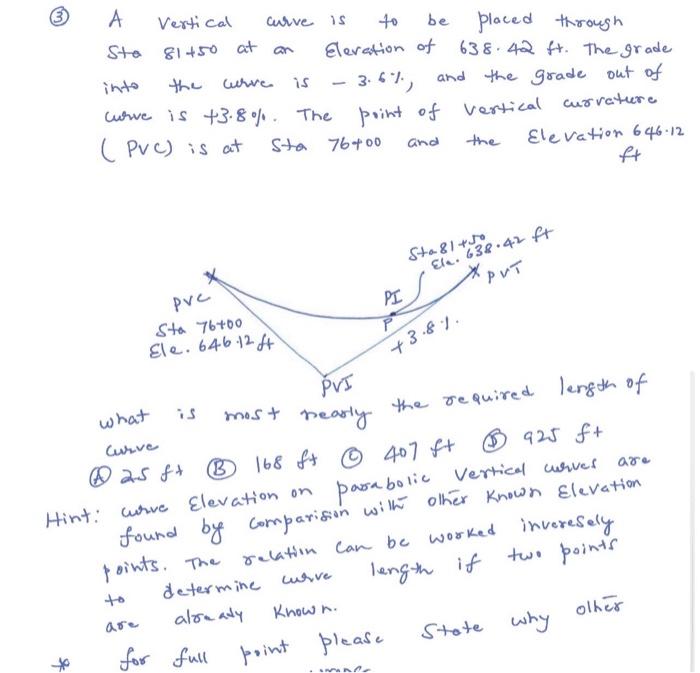 ③ A Vertical curve is to be placed through
Sta 81+50 at an Elevation of 638.42 ft. The grade
into the curve is - 3.6%, and the grade out of
curve is +3.8%. The point of vertical curvature
( PVC) is at Sta 76+00 and the Elevation 646.12
ft
Sta 81+50
Ele. 638.42 ft
PVT
PVC
PI
P
Sta 76+00
Ele. 646.12 ft
+3.8%.
PVI
what is most nearly the required length of
curve
Ⓐ 25 ft Ⓑ 168 ft Ⓒ 407 ft Ⓓ 925 ft
Hint: curve Elevation on parabolic Vertical curves are
found by comparision with other Known Elevation
points. The relation can be worked inveresely
to determine curve length if two points
are already Known.
* for full point please State why other